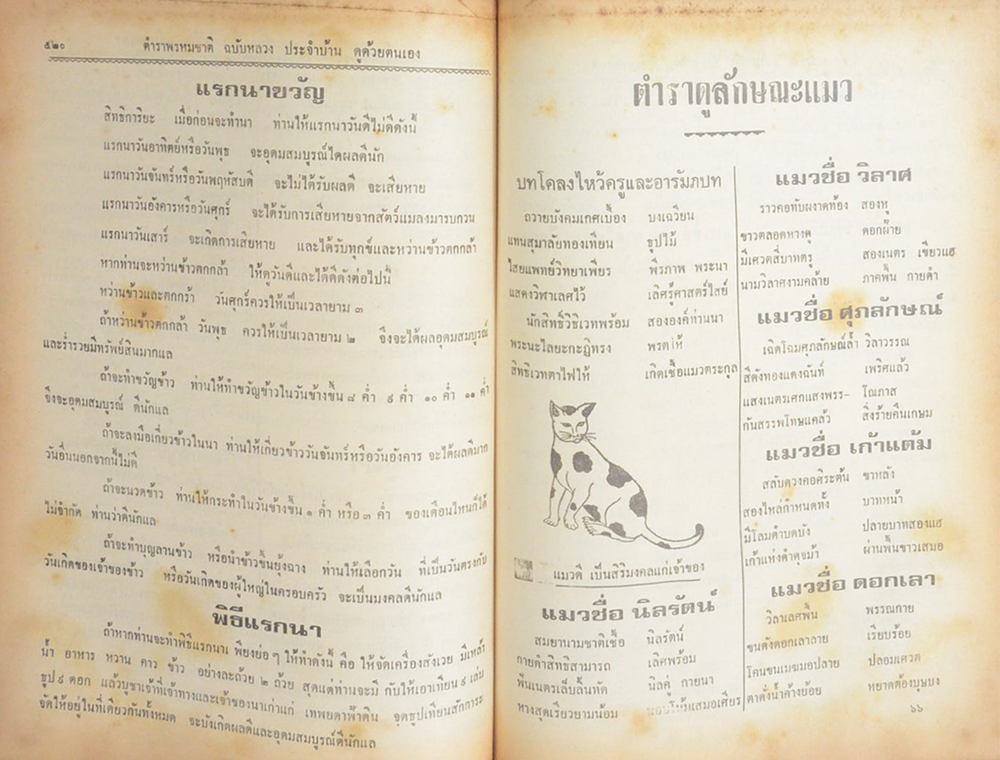 ๕๒๐ ตำราพรหมชาติ ฉบับหลวง ประจำบ้าน ดูด้วยตนเอง
แรกนาขวัญ
สิทธิการิยะ เมื่อก่อนจะทำนา ท่านให้แรกนาวันดีไม่ดีดังนี้
แรกนาวันอาทิตย์หรือวันพุธ จะอุดมสมบูรณ์ได้ผลดีนัก
แรกนาวันจันทร์หรือวันพฤหัสบดี จะไม่ได้รับผลดี จะเสียหาย
แรกนาวันอังคารหรือวันศุกร์ จะได้รับการเสียหายจากสัตว์แมลงมารบกวน
แรกนาวันเสาร์ จะเกิดการเสียหาย และได้รับทุกข์และหว่านข้าวตกกล้า
หากท่านจะหว่านข้าวตกกล้า ให้ดูวันดีและได้ดีดังต่อไปนี้
หว่านข้าวและตกกร้า วันศุกร์ควรให้เป็นเวลายาม ๓
ถ้าหว่านข้าวตกกล้า วันพุธ ควรให้เป็นเวลายาม ๒ จึงจะได้ผลอุดมสมบูรณ์
และร่ำรวยมีทรัพย์สินมากแล
ถ้าจะทำขวัญข้าว ท่านให้ทำขวัญข้าวในวันข้างขึ้น ๘ ค่ำ ๙ ค่ำ ๑๐ ค่ำ ๑๑ ค่ำ
จึงจะอุดมสมบูรณ์ ดีนักแล
ถ้าจะลงมือเกี่ยวข้าวในนา ท่านให้เกี่ยวข้าววันจันทร์หรือวันอังคาร จะได้ผลดีมาก
วันอื่นนอกจากนี้ไม่ดี
ถ้าจะนวดข้าว ท่านให้กระทำในวันข้างขึ้น ๑ ค่ำ หรือ ๓ ค่ำ ของเดือนไหนก็ได้
ไม่จำกัด ท่านว่าดีนักแล
ถ้าจะทำบุญลานข้าว หรือนำข้าวขึ้นยุ้งฉาง ท่านให้เลือกวัน ที่เป็นวันตรงกับ
วันเกิดของเจ้าของข้าว หรือวันเกิดของผู้ใหญ่ในครอบครัว จะเป็นมงคลดีนักแล
พิธีแรกนา
ถ้าหากท่านจะทำพิธีแรกนา เพียงย่อ ๆ ให้ทำดังนี้ คือ ให้จัดเครื่องสังเวย มีเหล้า
น้ำ อาหาร หวาน คาว ข้าว อย่างละถ้วย ๒ ถ้วย สุดแต่ท่านจะมี กับให้เอาเทียน ๙ เล่ม
ธูป ๙ ดอก แล้วบูชาเจ้าที่เจ้าทางและเจ้าของนาเก่าแก่ เทพยดาฟ้าดิน จุดธูปเทียนสักการะ
จัดให้อยู่ในที่เดียวกันทั้งหมด จะบังเกิดผลดีและอุดมสมบูรณ์ดีนักแล
ตำราดูลักษณะแมว
บทโคลงไหว้ครูและอารัมภบท
ถวายบังคมเกศเบื้อง บงเฉวียน
แทนสุมาลัยทองเทียน ธูปไม้
ไสยแพทย์วิทยาเพียร พีรภาพ พระนา
แสดงวิฬาเลศไว้ เลิศรู้ศาสตร์ไสย์
นักสิทธิ์วิธิเวทพร้อม สององค์ท่านนา
พระนะไลยะกะฎิทรง พรตให้
สิทธิเวทตาไฟให้ เกิดเชื้อแมวตระกูล
แมวดี เป็นสิริมงคลแก่เจ้าของ
แมวชื่อ นิลรัตน์
สมยานามชาติเชื้อ นิลรัตน์
กายดำสิทธิสามารถ เลิศพร้อม
ฟันเนตรเล็บลิ้นทัด นิลคู่ กายนา
หางสุดเรียวยาวน้อม
แมวชื่อ วิลาศ
ราวคอทับผงาดท้อง สองหู
ขาวตลอดหางดู ดอกฝ้าย
มีเศวตสี่บาทตรู สองเนตร เขียวแฮ
นามวิลาศงามคล้าย ภาคพื้น กายดำ
แมวชื่อ ศุภลักษณ์
เฉิดโฉมศุภลักษณ์ล้ำ วิลาวรรณ
สีดังทองแดงฉันท์ เพริศแล้ว
แสงเนตรเศกแสงพรร- โณภาส
กันสรรพโทษแคล้ว สิ่งร้ายคืนเกษม
แมวชื่อ เก้าแต้ม
สลับดวงคอศิระต้น ขาหลัง
สองไหล่กำหนดทั้ง บาทหน้า
มีโลมดำบดบัง ปลายบาทสองแฮ
เก้าแห่งดำดุจม้า ผ่านพื้นขาวเสมอ
แมวชื่อ ดอกเลา
วิลาเลศพื้น พรรณกาย
ขนดังดอกเลาลาย เรียบร้อย
โคนขนเมฆมอปลาย ปลอมเศวต
ตาดั่งน้ำค้างย้อย หยาดต้องบุษบง
๖๖